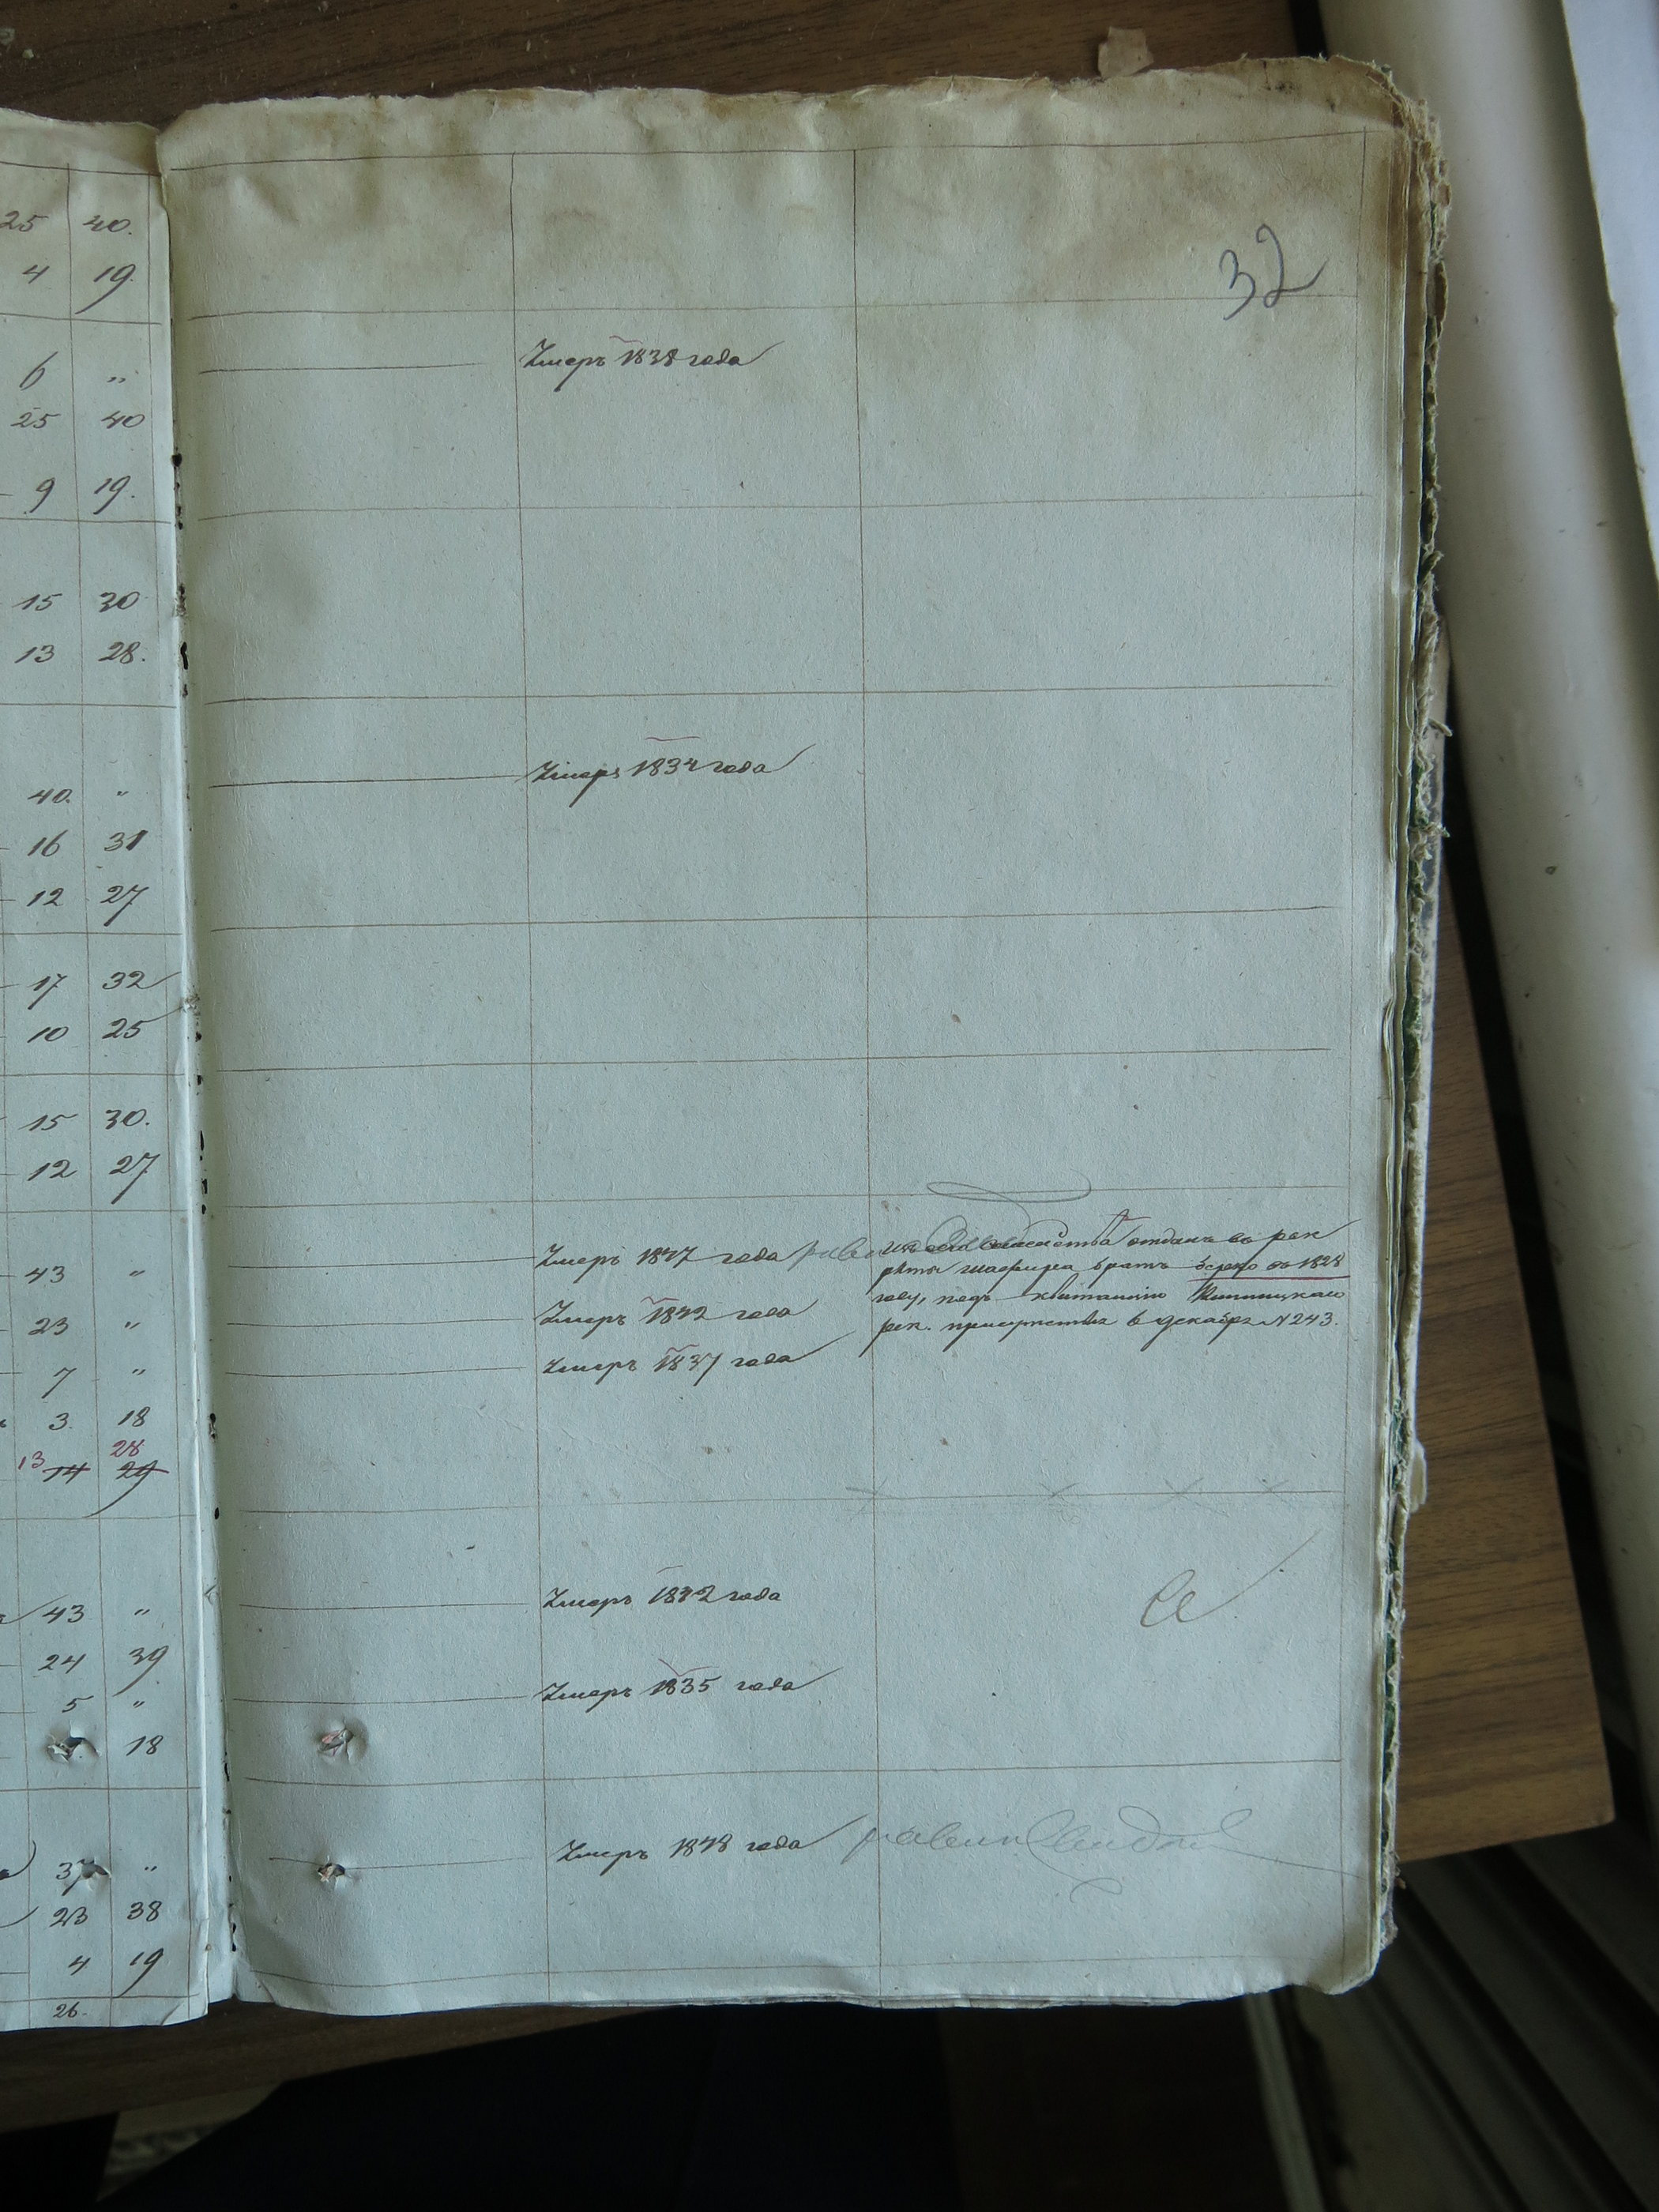 32
25 40.
4 19.
6 " Умеръ 1838 года
25 40
9 19.
15 30
13 28.
40. " Умеръ 1834 года
16 31
12 27
17 32
10 25
15 30.
12 27
43 " Умеръ 1847 года
отданъ въ рек
руты брать въ 1828
году, подъ квитанцію
рек. присутствія в декабрѣ N 243.
23 " Умеръ 1842 года
7 " Умеръ 1837 года
3. 18
13 28
14 29
43 " Умеръ года
24 39
5 " Умеръ 1835 года
18
37 " Умеръ 1848 года
23 38
4 19
26.